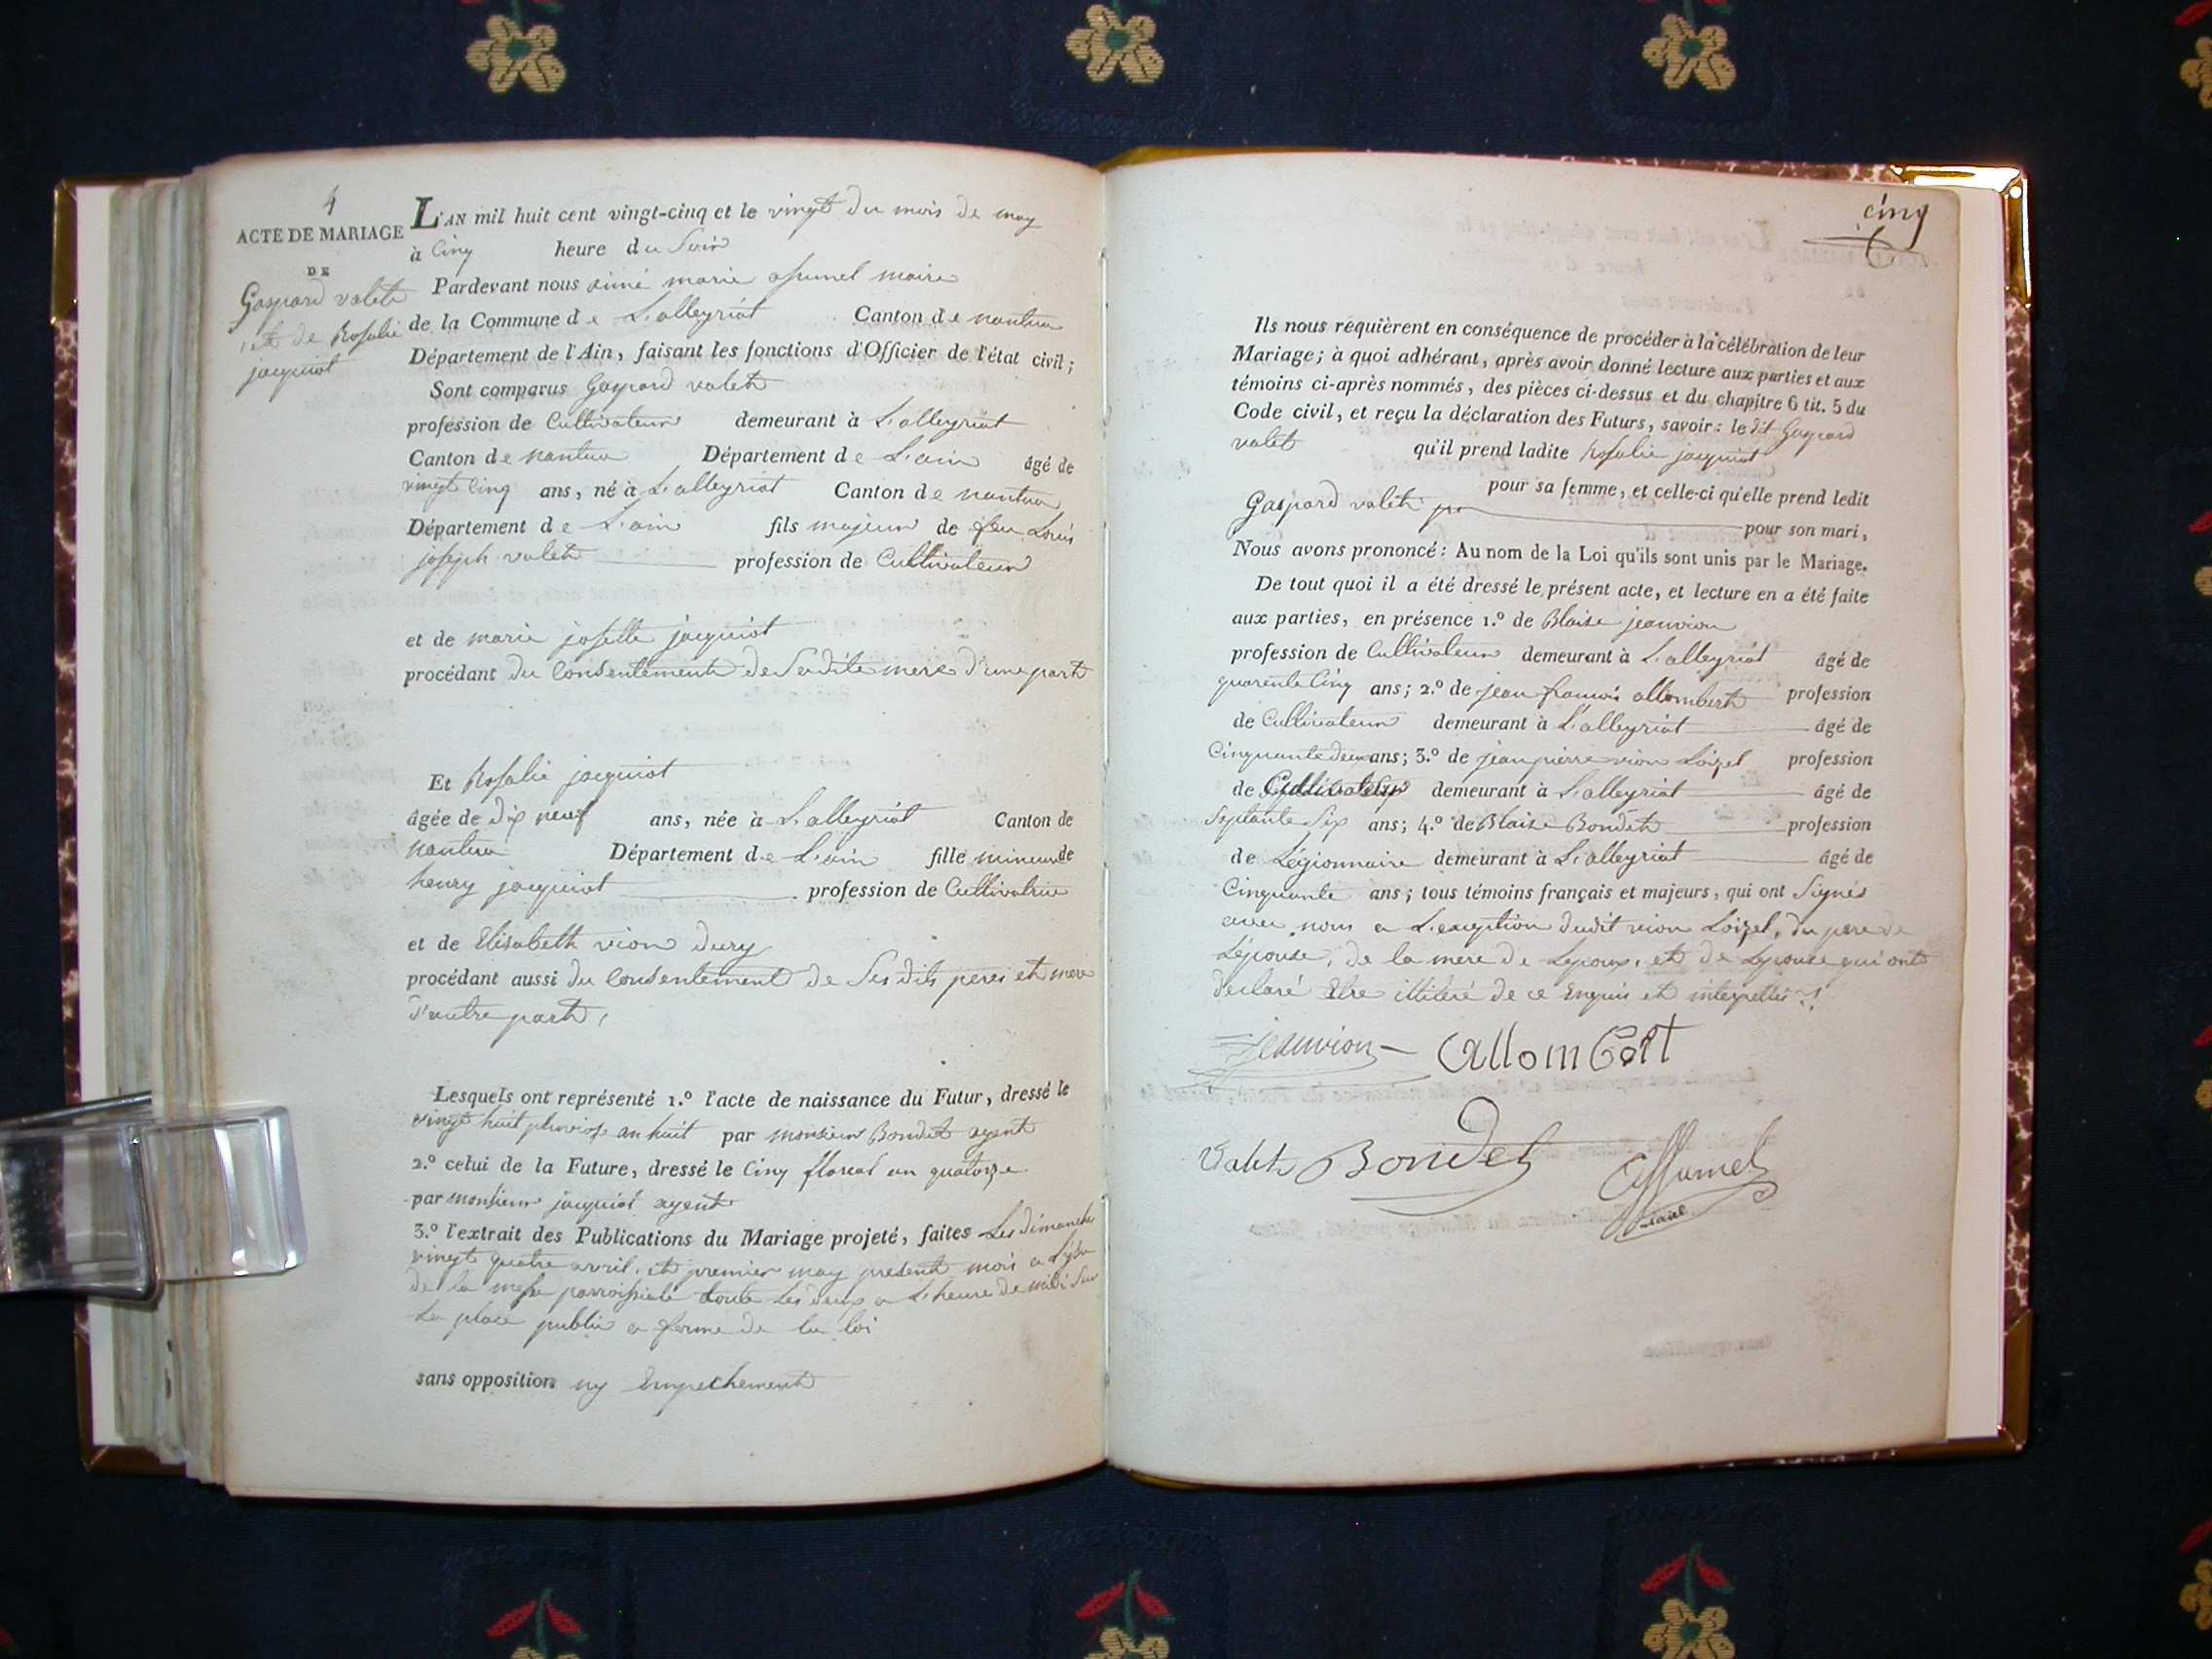 4
ACTE DE MARIAGE
DE
Gaspard valet
et de Rosalie
jacquiot
L'AN mil huit cent vingt-cinq et le vingt du mois de may
à Cinq heure du Soir
Pardevant nous aimé marie assumel maire
de la Commune de L'alleyriat Canton de nantua
Département de l'Ain, faisant les fonctions d'Officier de l'état civil;
Sont comparus Gaspard valet
profession de Cultivateur demeurant à L'alleyriat
Canton de nantua Département de L'ain âgé de
vingt cinq ans, né à L'alleyriat Canton de nantua
Département de L'ain fils majeur de feu Louis
joseph valet profession de Cultivateur
et de marie joselle jacquiot
procédant du Consentement de Sadite mere d'une part
Et Rosalie jacquiot
âgée de dix neuf ans, née à L'alleyriat Canton de
nantua Département de L'ain fille mineur de
henry jacquiot profession de Cultivatrice
et de Elisabeth vion dury
procédant aussi du Consentement de Ses dits peres et mere
d'autre part,
Lesquels ont représenté 1.º l'acte de naissance du Futur, dressé le
vingt huit pluviose an huit par monsieur Bondet agent
2.º celui de la Future, dressé le Cinq floreal an quatorze
par monsieur jacquiot agent
3.º l'extrait des Publications du Mariage projeté, faites Les dimanches
vingt quatre avril, et premier may present mois a L'issu
de la messe parroissiale toute Les deux a L'heure de midi Sur
La place public a forme de la loi
sans opposition ny Empechement
cinq
Ils nous requièrent en conséquence de procéder à la célébration de leur
Mariage; à quoi adhérant, après avoir donné lecture aux parties et aux
témoins ci-après nommés, des pièces ci-dessus et du chapitre 6 tit. 5 du
Code civil, et reçu la déclaration des Futurs, savoir: le dit Gaspard
valet qu'il prend ladite Rosalie jacquiot
pour sa femme, et celle-ci qu'elle prend ledit
Gaspard valet pour son mari,
Nous avons prononcé: Au nom de la Loi qu'ils sont unis par le Mariage.
De tout quoi il a été dressé le présent acte, et lecture en a été faite
aux parties, en présence 1.º de Blaise jeanvion
profession de Cultivateur demeurant à L'alleyriat âgé de
quarente Cinq ans; 2.º de jean francois allombert profession
de Cultivateur demeurant à L'alleyriat âgé de
Cinquante deux ans; 3.º de jean pierre vion Loizel profession
de Cultivateur demeurant à L'alleyriat âgé de
Septante Six ans; 4.º de Blaise Bondet profession
de Légionnaire demeurant à L'alleyriat âgé de
Cinquante ans; tous témoins français et majeurs, qui ont Signés
avec nous a L'exception dudit vion Loizel, du pere de
Lépouse, de la mere de Lepoux, et de Lepouse qui ont
declaré Etre illiteré de ce Enquis et interpellés
jeanvion allombert
Valet Bondet assumel
maire